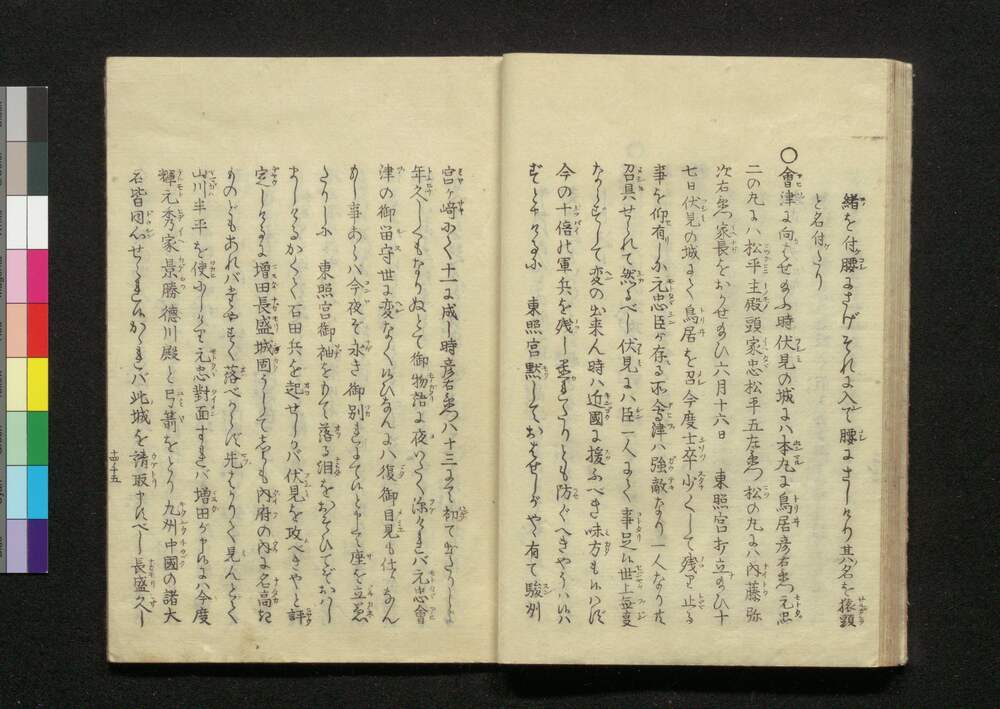 緒を付腰にさげそれに入て腰にさしけり其名を猿頬
と名付たり
○會津に向はせ給ふ時伏見の城にハ本丸に鳥居彦右衛門元忠
二の丸にハ松平主殿頭家忠松平五左衛門松の丸にハ内藤弥
次右衛門家長をおかせ給ひ六月十六日　東照宮打立給ひ十
七日伏見の城にて鳥居を召今度士卒少くして残り止る
事を仰有しに元忠臣が存る所會津ハ強敵なり一人なりとも
召具せられて然るべし伏見にハ臣一人にて事足ぬ世上無変
ならずして変の出来ん時ハ近國に援ふべき味方もいはず
今の十倍の軍兵を残し置れたりとも防ぐべきやうハいはじ
ずと申けるに　東照宮黙しておはせしがやゝ有て駿州
宮ヶ崎にて十一に成し時彦右衛門ハ十三にて初て出たりしより
年久しくもなりぬとて御物語に夜いたく深けれバ元忠會
津の御留守世に変なくいひなんにハ復御目見も仕りなん
もし事あらバ今夜を永き御別れにていと申て座を立退
たりしに　東照宮御袖をもて落る泪をおさひておハし
ましけるかくて石田兵を起せしかバ伏見を攻べきやと評
定しけるに増田長盛城固うして志かも内府の内に名高き
ものどもあれバたやすく落べからず先はかりて見んとて
山川半平を使にしたり元忠對面すれバ増田が申けるハ今度
輝元秀家景勝徳川殿と弓箭をとり九州中國の諸大
名皆同心せられいかゝれバ此城を請取申べし長盛久し
十四ノ五